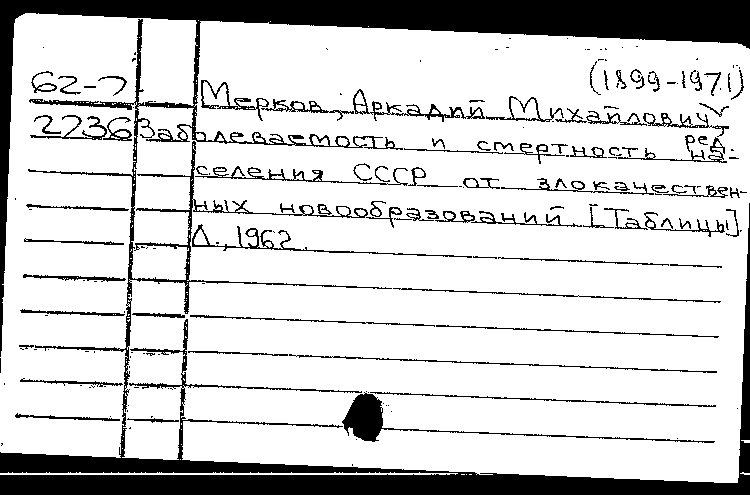 (1899-1971)
62-7 Мерков, Аркадий Михайлович,
ред.
27363 Заболеваемость и смертность на-
селения СССР от злокачествен-
ных новообразований. [Таблицы]
Л., 1962.